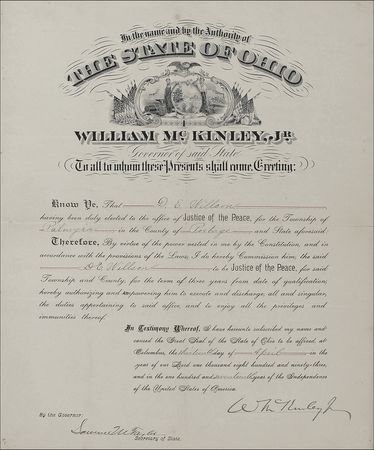 In the name and by the Authority of
THE STATE OF OHIO
WILLIAM McKINLEY, JR.
Governor of said State
To all to whom these Presents shall come, Greeting:
Know Ye, That D. E. Wilson
having been duly elected to the office of Justice of the Peace, for the Township of
Palmyra in the County of Portage and State aforesaid:
Therefore, By virtue of the powers vested in me by the Constitution, and in
accordance with the provisions of the Laws, I do hereby Commission him, the said
D E Wilson to be Justice of the Peace, for said
Township and County, for the term of three years from date of qualification;
hereby authorizing and empowering him to execute and discharge, all and singular,
the duties appertaining to said office, and to enjoy all the privileges and
immunities thereof.
In Testimony Whereof, I have hereunto subscribed my name and
caused the Great Seal of the State of Ohio to be affixed, at
Columbus, the day of April in the
year of our Lord one thousand eight hundred and ninety-three,
and in the one hundred and seventeenth year of the Independence
of the United States of America.
Wm McKinley Jr
By the Governor:
Samuel M Taylor
Secretary of State.